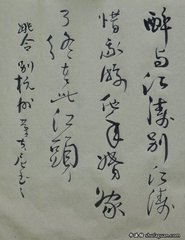 醉与江濤别江濤
惜我游他年婚嫁
了终老此江頭
姚合别杭州